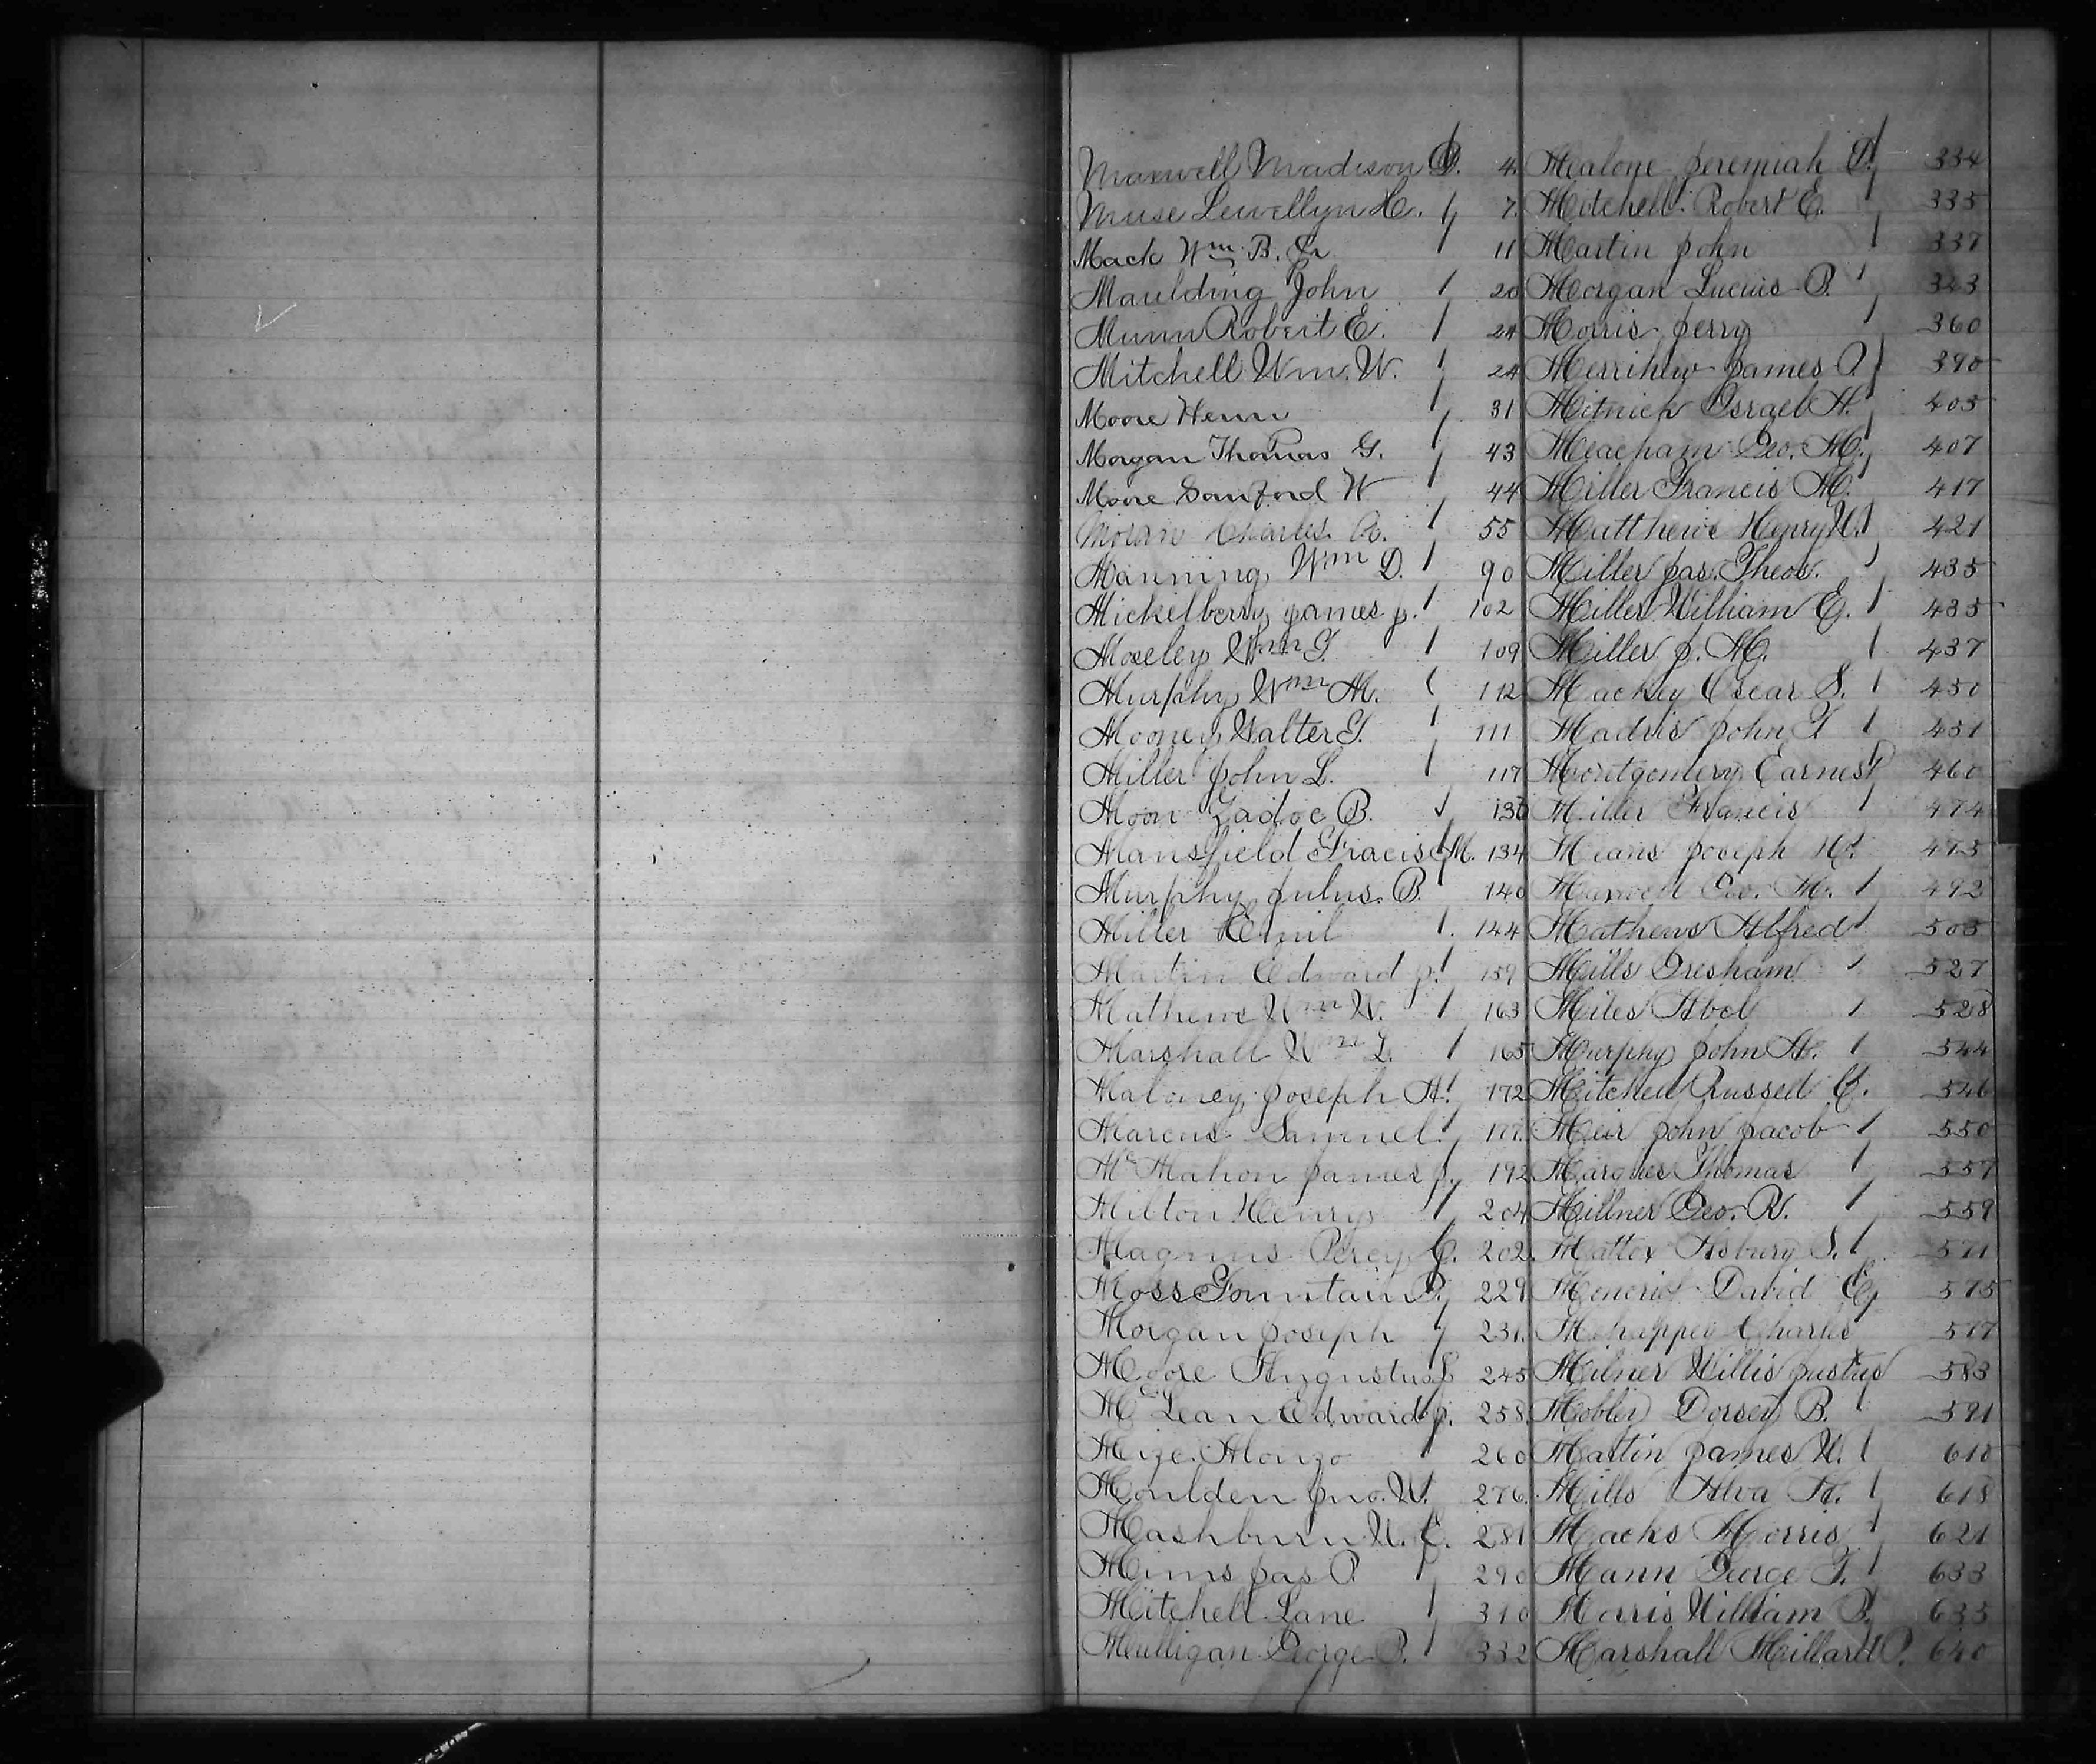 Maxwell Madison D. 4.
Muse Lewellyn H. 7.
Mack Wm. B. Jr 11
Maulding John 20
Munn Robert E. 24
Mitchell Wm. W. 24
Moore Henri 31
Morgan Thomas G. 43
Moore Sanford W 44
Moran Charles R. 55
Manning, Wm D. 90
Mickelberry James J. 102
Moseley Wm T. 109
Murphy Wm M. 112
Mooney Walter T. 111
Miller John L. 117
Moon Zadoc B. 130
Mansfield Fracis M. 134
Murphy Julius. B. 140
Miller Emil 144
Martin Edward J. 159
Mathews Wm W. 163
Marshall Wm L. 165
Maloney, Joseph A. 172
Marcus Samuel 177.
McMahon James J. 192
Milton Henry 204
Magnus Percy C. 202.
Moss Fountain P. 229
Morgan Joseph 231.
Moore Augustus L 245
McLean Edward J. 258.
Mize Alonzo 260
Moulden Jno. W. 276.
Mashburn W. C. 281
Mims Jas P. 290
Mitchell Lane 310
Mulligan George P. 332
Malone Jeremiah D. 334
Mitchell Robert E. 335
Martin John 337
Morgan Lucius P. 343
Morris Jerry 360
Merrihew James O. 390
Mitnick Israel H. 405
Meacham Geo. M. 407
Miller Francis M. 417
Matthews Henry W. 421
Miller Jas. Theos. 435
Miller William E. 435
Miller J. M. 437
Mackey Oscar S. 450
Madris John T 451
Montgomery Earnest 460
Miller Francis 474
Means Joseph H. 475
Maxwell Geo. M. 492
Mathews Alfred 503
Mills Gresham 527
Miles Abel 528
Murphy John H. 544
Mitchell Russell C. 546
Meir John Jacob 550
Marques Thomas 557
Millner Geo. R. 559
Mattox Asbury S. 571
David E 575
Charles 577
Milner Willis Justus 583
Mobley Dorsey B. 591
Martin James W. 610
Mills Alva H. 618
Macks Morris 621
Mann George T. 633
Morris William P. 635
Marshall Millard P. 640